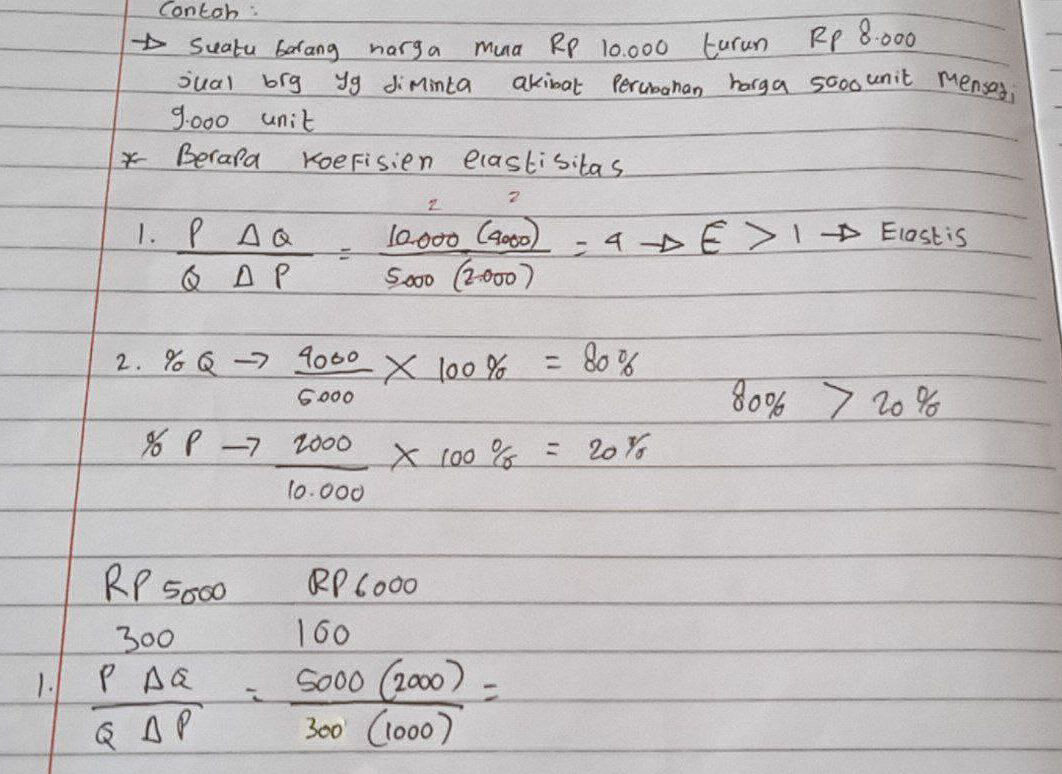 Contoh :
→ Suatu barang harga mula RP 10.000 turun RP 8.000
jual brg yg diminta akibat Perubahan harga 5000 unit Menjadi
9.000 unit
* Berapa Koefisien elastisitas
2 2
1. P ΔQ / Q ΔP = 10.000 (4000) / 5.000 (2.000) = 4 → E > 1 → Elastis
2. % Q → 4000 / 5.000 × 100 % = 80 %
80% > 20 %
% P → 2000 / 10.000 × 100 % = 20 %
RP 5000 RP 6000
300 100
1. P ΔQ / Q ΔP = 5000 (2000) / 300 (1000) =